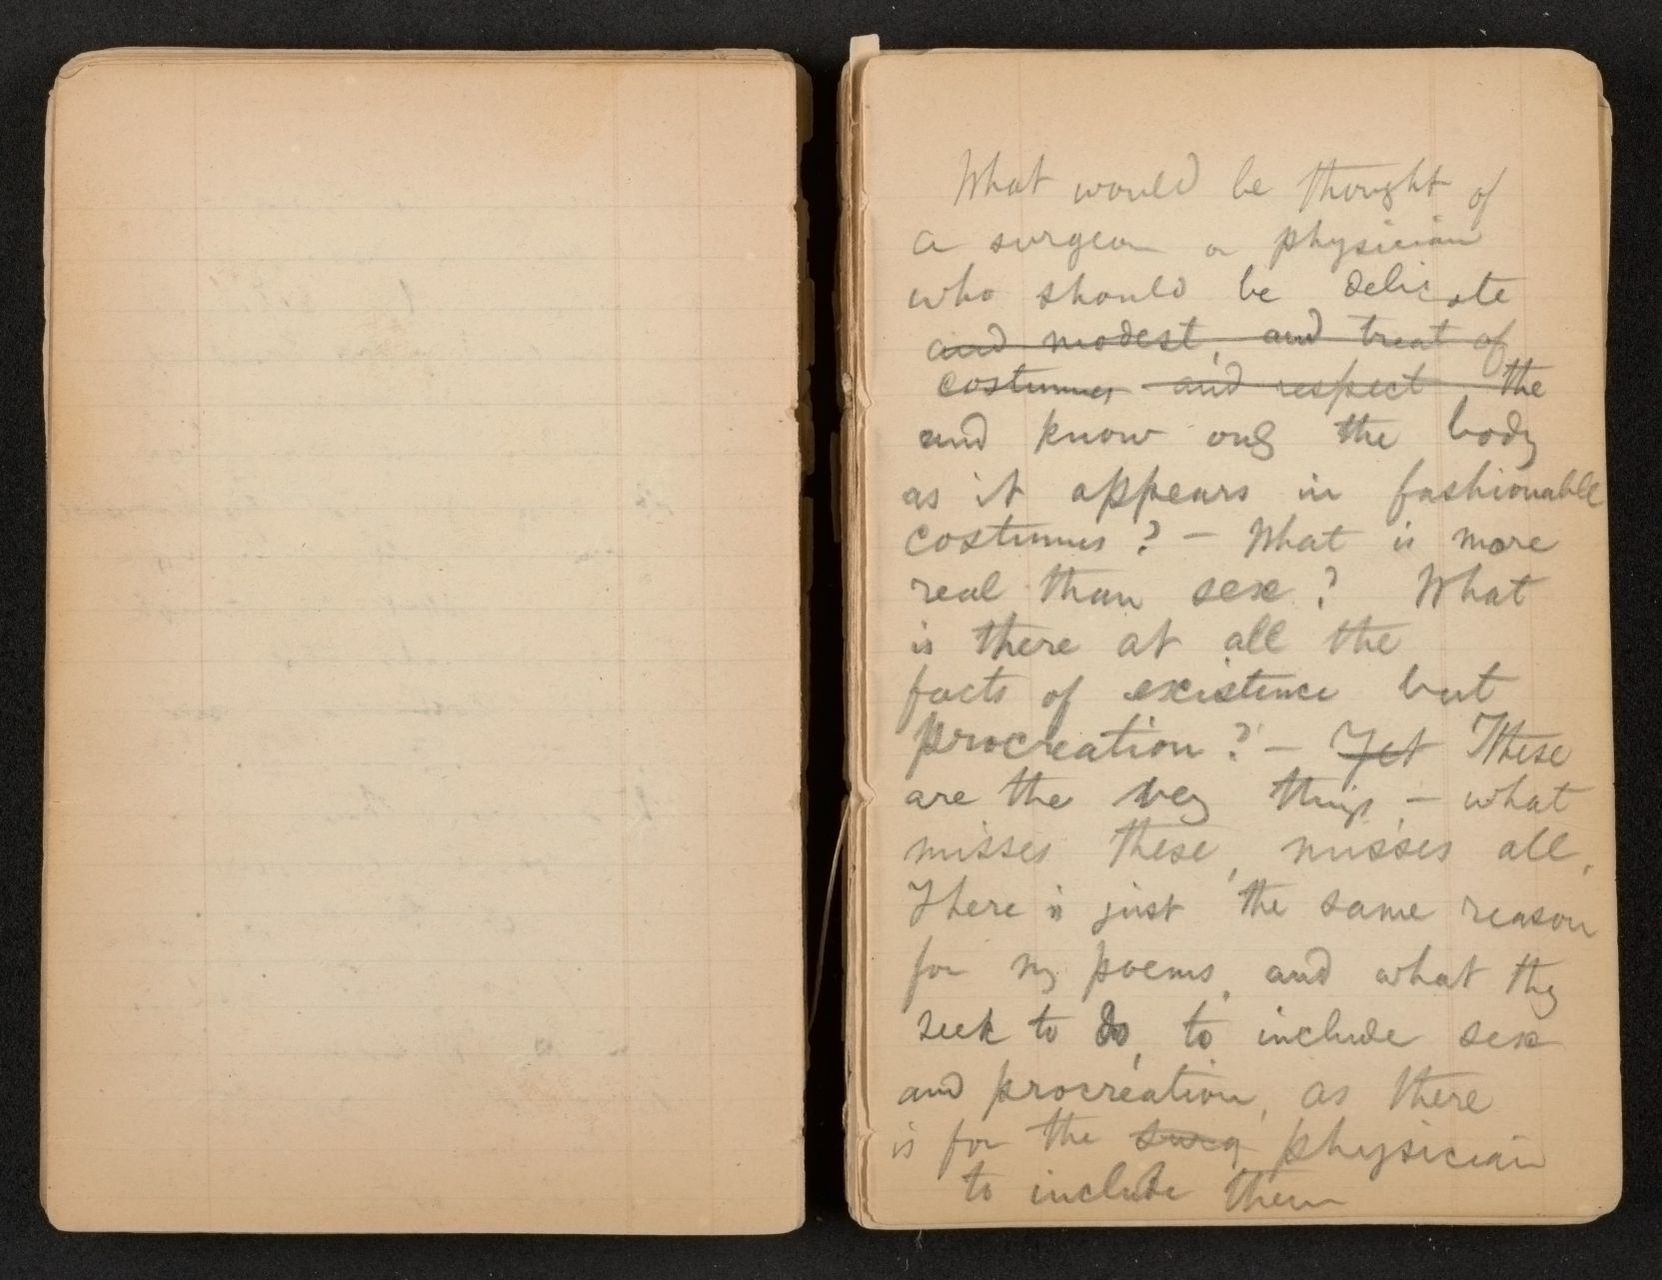 What would be thought of
a surgeon or physician
who should be delicate
and modest, and treat of
costumes and respect the
and know only the body
as it appears in fashionable
costumes? – What is more
real than sex? What
is there at all the
facts of existence but
procreation? – Yet These
are the very things – what
misses these, misses all.
There is just the same reason
for my poems, and what they
seek to do, to include sex
and procreation, as there
is for the surg physician
to include them